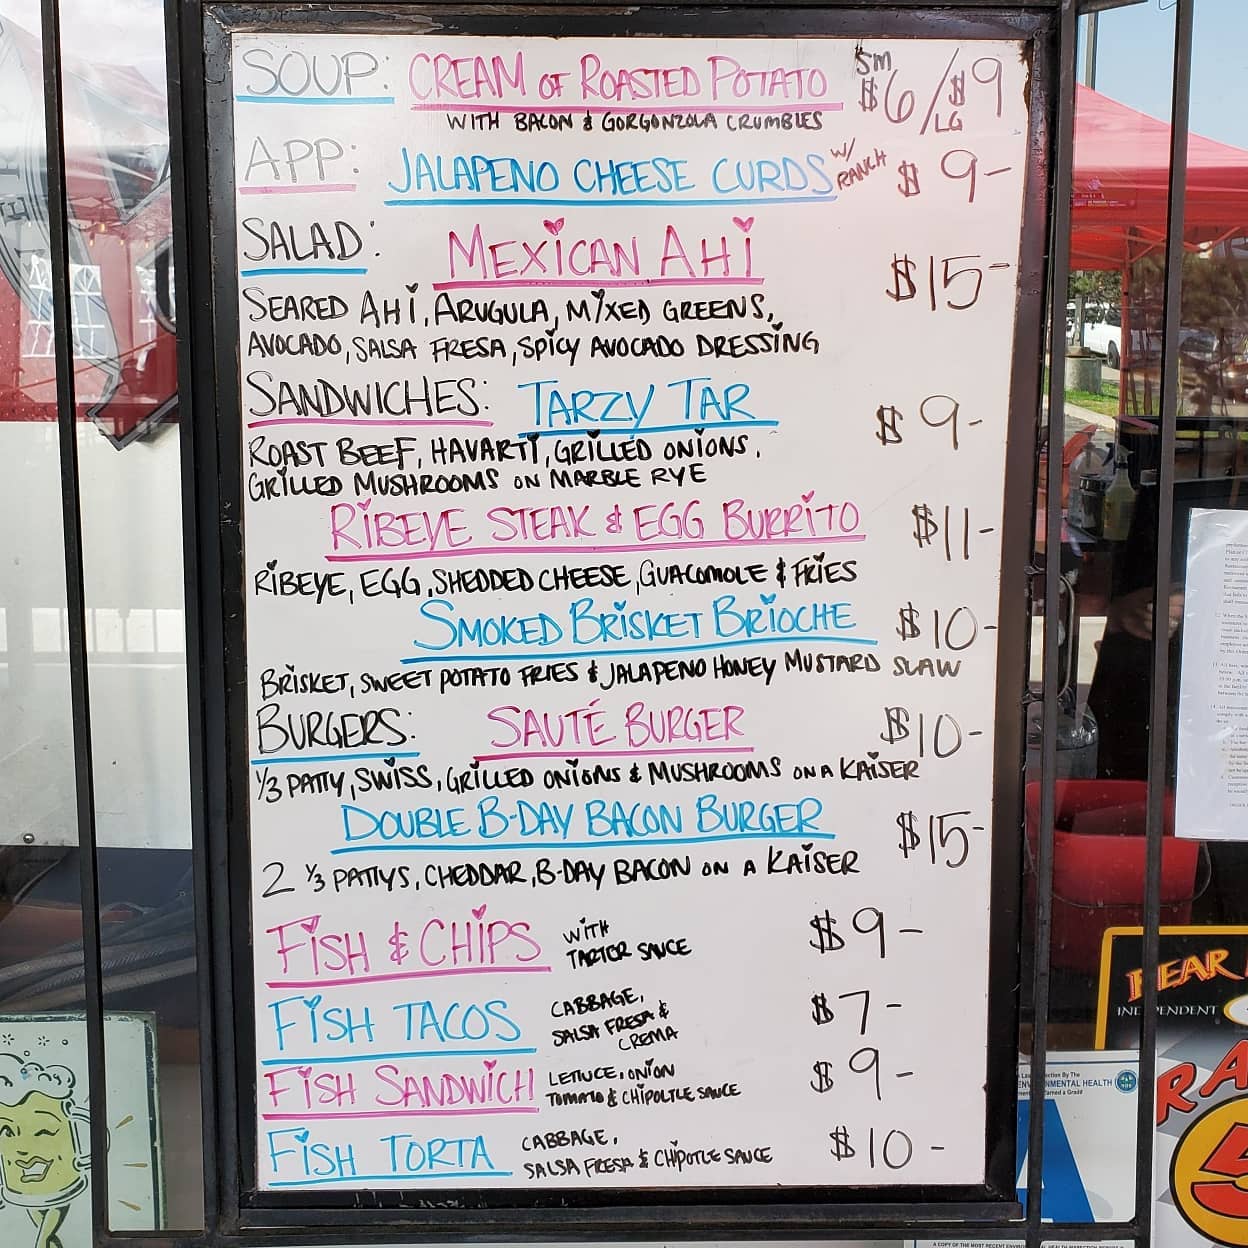 SOUP: CREAM OF ROASTED POTATO SM $6/LG $9
WITH BACON & GORGONZOLA CRUMBLES
APP: JALAPENO CHEESE CURDS W/ RANCH $9-
SALAD: MEXICAN AHI $15-
SEARED AHI, ARUGULA, MIXED GREENS,
AVOCADO, SALSA FRESA, SPICY AVOCADO DRESSING
SANDWICHES: TARZY TAR $9-
ROAST BEEF, HAVARTI, GRILLED ONIONS,
GRILLED MUSHROOMS ON MARBLE RYE
RIBEYE STEAK & EGG BURRITO $11-
RIBEYE, EGG, SHEDDED CHEESE, GUACOMOLE & FRIES
SMOKED BRISKET BRIOCHE $10-
BRISKET, SWEET POTATO FRIES & JALAPENO HONEY MUSTARD SLAW
BURGERS: SAUTÉ BURGER $10-
1/3 PATTY, SWISS, GRILLED ONIONS & MUSHROOMS ON A KAISER
DOUBLE B-DAY BACON BURGER $15-
2 1/3 PATTYS, CHEDDAR, B-DAY BACON ON A KAISER
FISH & CHIPS WITH $9-
TARTER SAUCE
FISH TACOS CABBAGE, $7-
SALSA FRESA &
CREMA
FISH SANDWICH LETTUCE, ONION $9-
TOMATO & CHIPOLTLE SAUCE
FISH TORTA CABBAGE, $10-
SALSA FRESA & CHIPOTLE SAUCE
INDEPENDENT
ction By The
ENVIRONMENTAL HEALTH
Earned a Grade
A
5
A COPY OF THE MOST RECENT